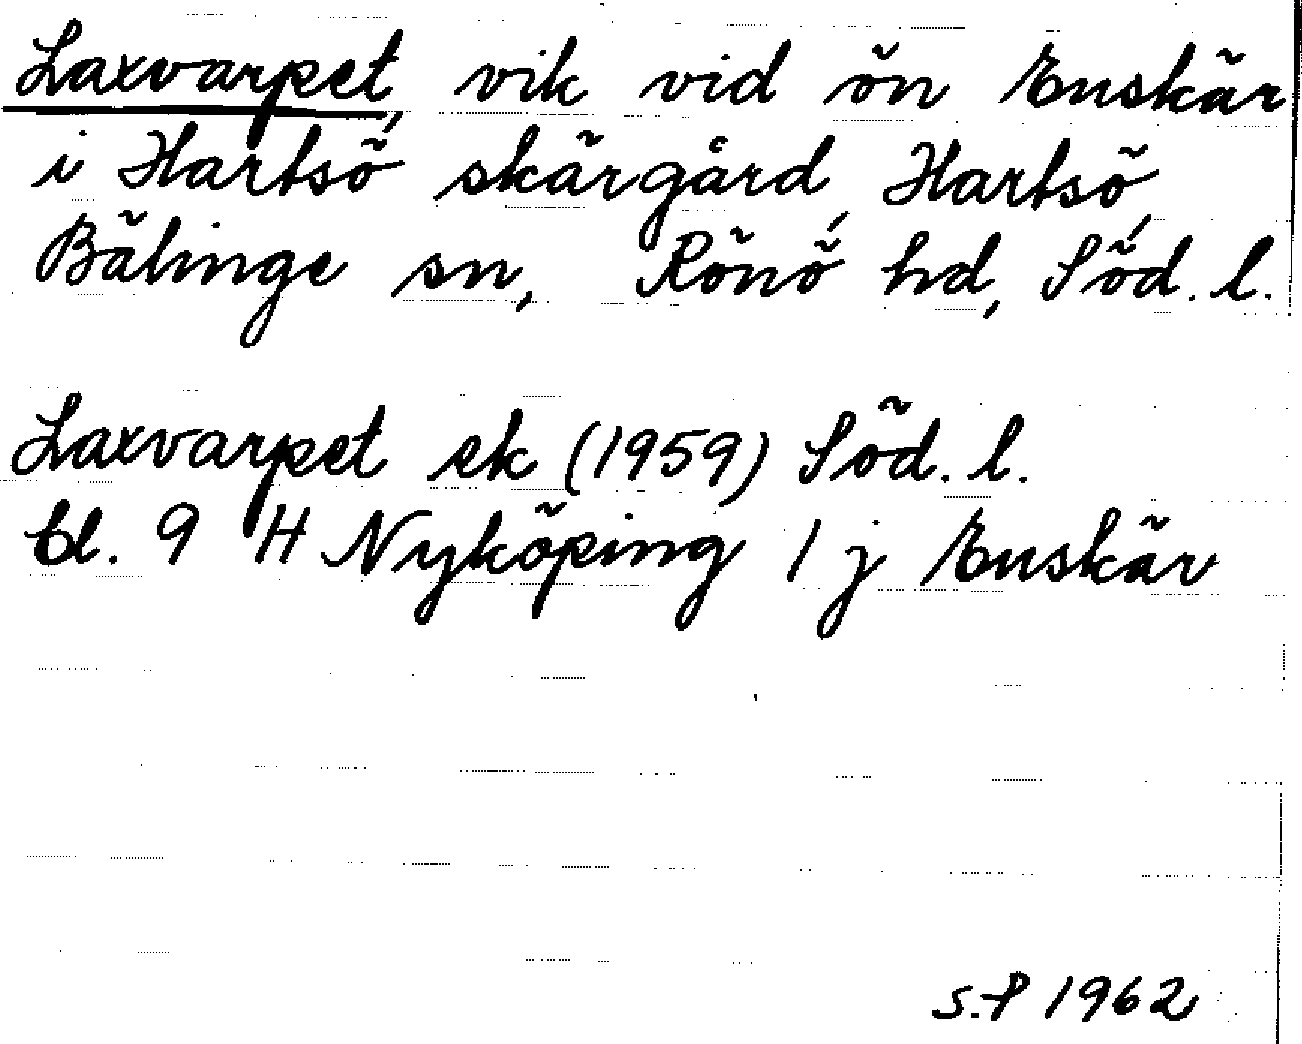 Laxvarpet, vik vid ön Enskär
i Hartsö skärgård, Hartsö,
Bälinge sn, Rönö hd, Söd. l.
Laxvarpet ek (1959) Söd. l.
bl. 9 H Nyköping 1 j Enskär
S.P 1962